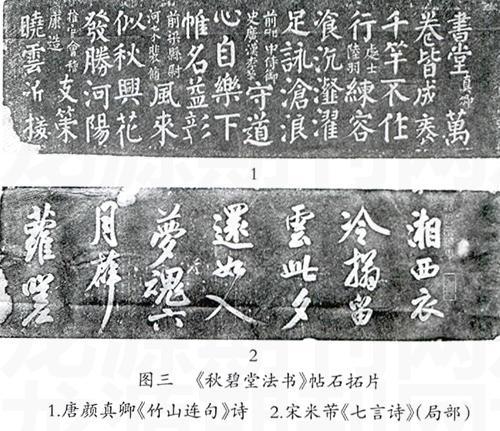 書堂真卿萬
卷皆成袠
千竿不作
行處士陸羽練容
飡沆瀣濯
足詠滄浪
前殿中侍御史廣漢李萼守道
心自樂下
帷名益彰
前梁縣尉河東裴脩風來
似秋興花
發勝河陽
推官會稽康造支策
曉雲近援
1
湘西衣
冷搨留
雲此夕
還如入
夢魂六
月薜
蘿嗟
2
图三 《秋碧堂法书》帖石拓片
1.唐颜真卿《竹山连句》诗 2.宋米芾《七言诗》(局部)